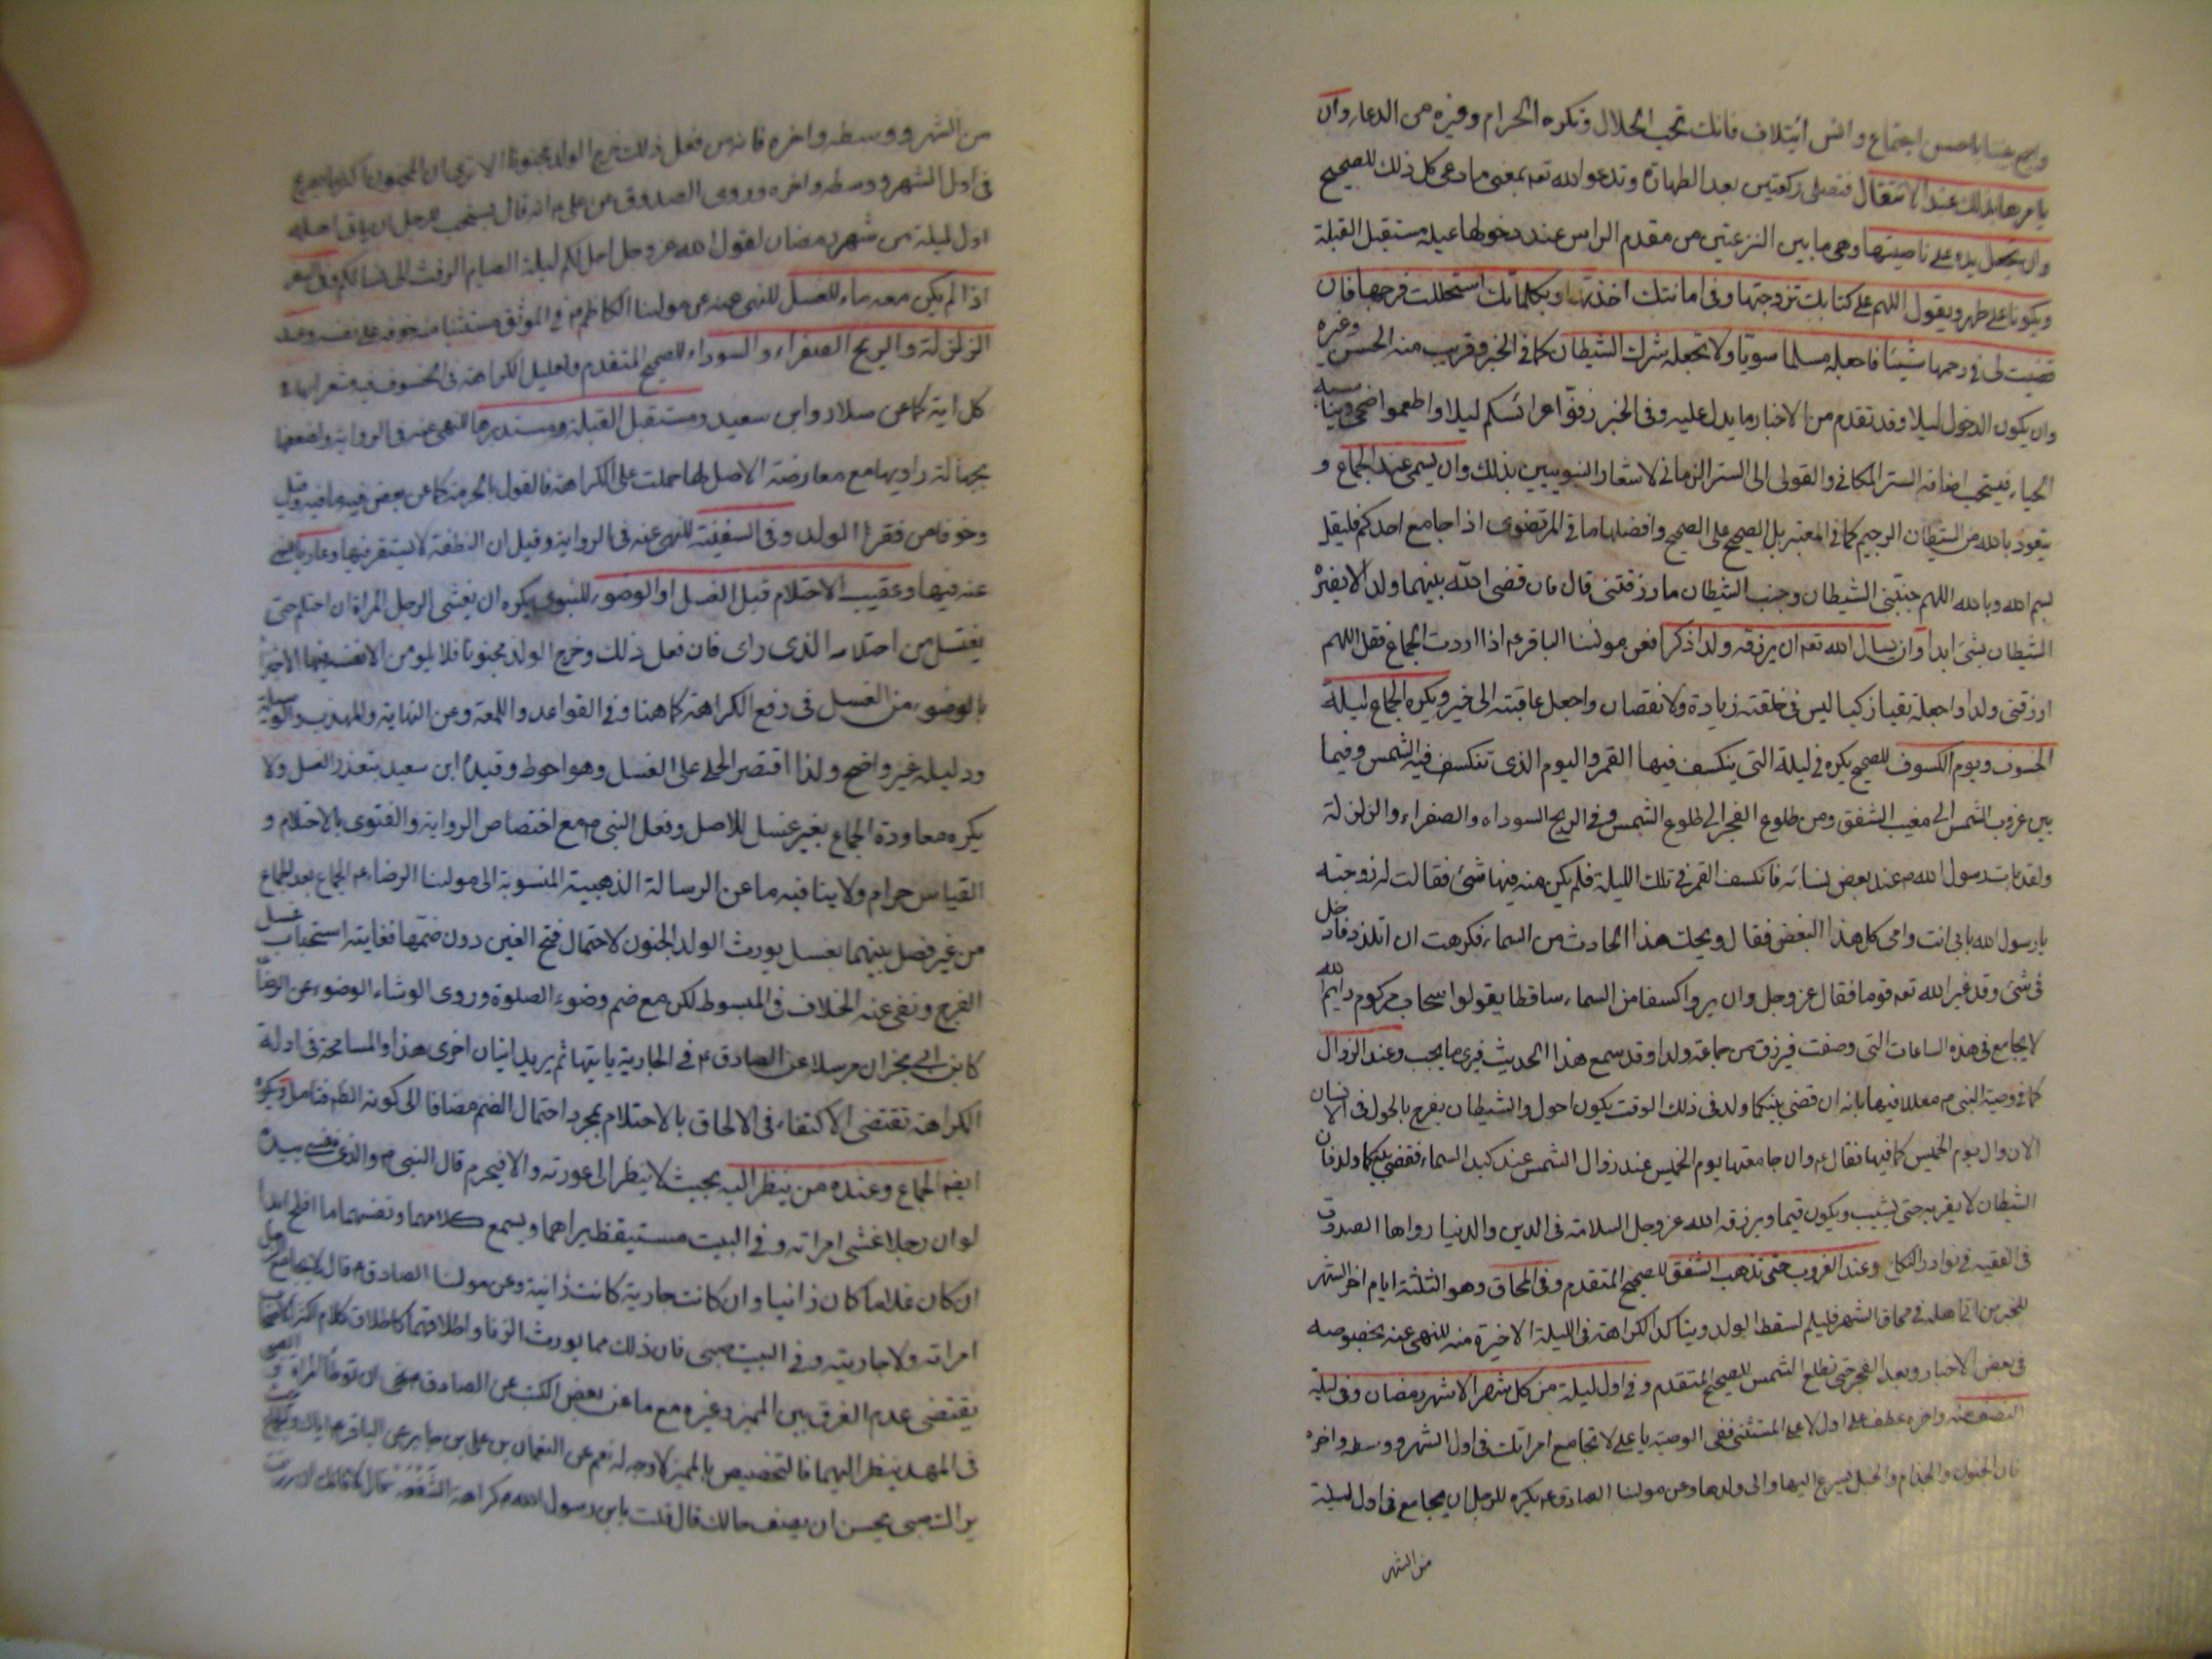 واجمع بيننا باحسن اجتماع وانس ايتلاف فانك تحب الحلال وتكره الحرام وغيره من الدعاء وان
يامرها بذلك عند الانتقال فتصلى ركعتين بعد الطهارة وتدعو الله تعه بمعنى ما دعى كل ذلك للصحيح
وان يجعل يده على ناصيتها وهى ما بين النزعتين من مقدم الراس عند دخولها عليه مستقبل القبلة
ويكونا على طهر ويقول اللهم على كتابك تزوجتها وفى امانتك اخذتها وبكلماتك استحللت فرجها فان
قضيت لى فى رحمها شيئا فاجعله مسلما سويا ولا تجعله شرك الشيطان كما فى الخبر وقريب منه الحسن وغيره
وان يكون الدخول ليلا وقد تقدم من الاخبار ما يدل عليه وفى الخبر زفوا عرائسكم ليلا واطعموا ضحى ويناسبه
الحياء فيستحب اضافة الستر المكانى والقولى الى الستر الزمانى لاشعار النبويين بذلك وان يسمى عند الجماع و
يتعوذ بالله من الشيطان الرجيم كما فى المعتبر بل الصحيح على الصحيح وافضلها ما فى المرتضوى اذا جامع احدكم فليقل
بسم الله وبالله اللهم جنبنى الشيطان وجنب الشيطان ما رزقتنى قال فان قضى الله بينهما ولدا لا يضره
الشيطان بشئ ابدا وان يسال الله تعه ان يرزقه ولدا ذكرا فعن مولنا الباقر عم اذا اردت الجماع فقل اللهم
ارزقنى ولدا واجعله تقيا زكيا ليس فى خلقته زيادة ولا نقصان واجعل عاقبته الى خير ويكره الجماع ليلة
الخسوف ويوم الكسوف للصحيح يكره فى ليلة التى ينكسف فيها القمر واليوم الذى تنكسف فيه الشمس وفيما
بين غروب الشمس الى مغيب الشفق ومن طلوع الفجر الى طلوع الشمس وفى الريح السوداء والصفراء والزلزلة
ولقد بات رسول الله ص عند بعض نسائه فانكسف القمر فى تلك الليلة فلم يكن منه فيها شئ فقالت له زوجته
يا رسول الله بابى انت وامى كل هذا البغض فقال ويحك هذا الحادث من السماء فكرهت ان اتلذذ فادخل
فى شئ وقد عير الله تعه قوما فقال عز وجل وان يروا كسفا من السماء ساقطا يقولوا سحاب مركوم وايم الله
لا يجامع فى هذه الساعات التى وصفت فيرزق من جماعه ولدا وقد سمع هذا الحديث فيرى ما يحب وعند الزوال
كما فى وصية النبى ص معللا فيها بانه ان قضى بينكما ولد فى ذلك الوقت يكون احول والشيطان يفرح بالحول فى الانسان
الا زوال يوم الخميس كما فيها فقال عم وان جامعتها يوم الخميس عند زوال الشمس عند كبد السماء فقضى بينكما ولد فان
الشيطان لا يقربه حتى يشيب ويكون قيما ويرزقه الله عز وجل السلامة فى الدين والدنيا رواها الصدوق
فى الفقيه فى نوادر النكاح وعند الغروب حتى تذهب الشفق للصحيح المتقدم وفى المحاق وهو الثلثة ايام اخر الشهر
للخبر من اتى اهله فى محاق الشهر فليسلم لسقط الولد ويتاكد الكراهة فى الليلة الاخيرة منه للنهى عنه بخصوصه
فى بعض الاخبار وبعد الفجر حتى تطلع الشمس للصحيح المتقدم وفى اول ليلة من كل شهر الا شهر رمضان وفى ليلة
النصف منه واخره عطف على اول لا على المستثنى ففى الوصية يا على لا تجامع امراتك فى اول الشهر ووسطه واخره
فان الجنون والجذام والخبل يسرع اليها والى ولدها وعن مولنا الصادق عم يكره للرجل ان يجامع فى اول ليلة
من الشهر
من الشهر ووسطه واخره فانه من فعل ذلك خرج الولد مجنونا الا ترى ان المجنون اكثر ما يصرع
فى اول الشهر ووسطه واخره وروى الصدوق عن على عم انه قال يستحب للرجل ان ياتى اهله
اول ليلة من شهر رمضان لقول الله عز وجل احل لكم ليلة الصيام الرفث الى نسائكم وفى السفر
اذا لم يكن معه ماء للغسل للنهى عنه عن مولنا الكاظم عم فى الموثق مستثنيا منه خوفه على نفسه وعند
الزلزلة والريح الصفراء والسوداء للصحيح المتقدم وتعليل الكراهة فى الخسوف فيه مشعر بها
كل اية كما عن سلار وابن سعيد ومستقبل القبلة ومستدبرها للنهى عنه فى الرواية ولضعفها
بجهالة راويها مع معارضة الاصل لها حملت على الكراهة فالقول بالحرمة كما عن بعض فيه ما فيه وقيل
وخوفا من فقر الولد وفى السفينة للنهى عنه فى الرواية وقيل ان النطفة لا يستقر فيها وعاريا للنهى
عنه فيها وعقيب الاحتلام قبل الغسل او الوضوء للنبوى يكره ان يغشى الرجل المراة ان احتلم حتى
يغتسل من احتلامه الذى راى فان فعل ذلك وخرج الولد مجنونا فلا يلومن الا نفسه
بالوضوء من الغسل فى رفع الكراهة كما هنا وفى القواعد واللمعة وعن النهاية والمهذب والوسيلة
ودليله غير واضح ولذا اقتصر الحلى على الغسل وهو احوط وقيده ابن سعيد بتعذر الغسل ولا
يكره معاودة الجماع بغير غسل للاصل وفعل النبى ص مع اختصاص الرواية والفتوى بالاحتلام و
القياس حرام ولا ينافيه ما عن الرسالة الذهبية المنسوبة الى مولنا الرضا عم الجماع بعد الجماع
من غير فصل بينهما بغسل يورث الولد الجنون لاحتمال فتح الغين دون ضمها فغايته استحباب غسل
الفرج ونفى عنه الخلاف فى المبسوط لكن مع ضم وضوء الصلوة وروى الوشاء الوضوء عن الرضا
كابن ابى نجران مرسلا عن الصادق عم فى الجارية ياتيها ثم يريد اتيان اخرى هذا والمسامحة فى ادلة
الكراهة تقتضى الاكتفاء فى الالحاق بالاحتلام بمجرد احتمال الضم مضافا الى كونه الظم فتامل ويكره
ايضا الجماع وعنده من ينظر اليه بحيث لا ينظر الى عورته والا فيحرم قال النبى ص والذى نفسى بيده
لو ان رجلا غشى امراته وفى البيت مستيقظ يراهما ويسمع كلامهما ونفسهما ما افلح ابدا
ان كان غلاما كان زانيا وان كانت جارية كانت زانية وعن مولنا الصادق عم قال لا يجامع الرجل
امراته ولا جاريته وفى البيت صبى فان ذلك مما يورث الزنا واطلاقهما كاطلاق كلام اكثر الاصحاب
يقتضى عدم الفرق بين المميز وغيره مع ما عن بعض الكتب عن الصادق عم نهى ان توطأ المراة و الصبى
فى المهد ينظر اليهما فالتخصيص بالمميز لا وجه له نعم عن النعمان بن على بن جابر عن الباقر عم اياك والجماع
يراك صبى يحسن ان يصف حالك قال قلت يا بن رسول الله ص كراهة الشنعة قال لا فانك ان رزقت